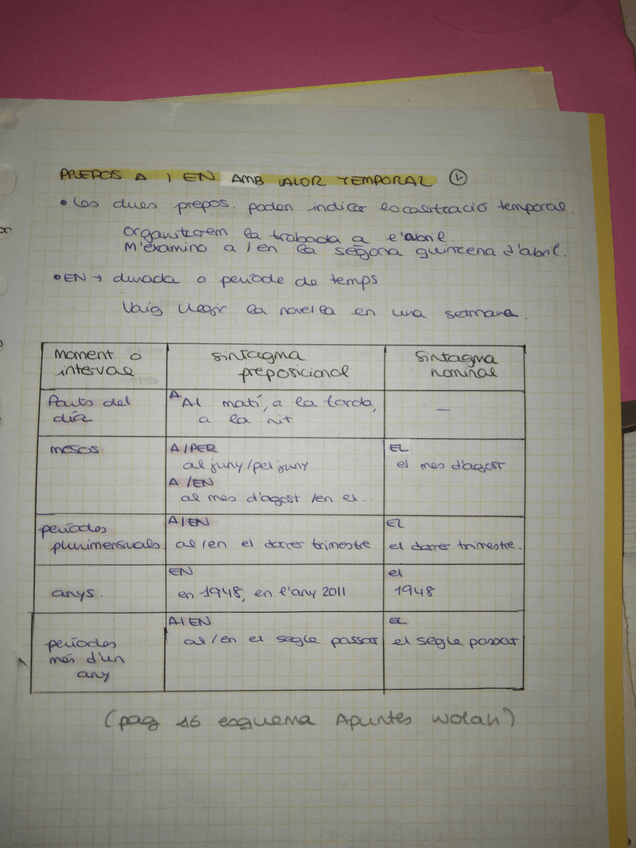 PREPOS A I EN AMB VALOR TEMPORAL
• Les dues prepos. poden indicar localització temporal.
Organitzarem la trobada a l'abril.
M'examino a/en la segona quinzena d'abril.
• EN → durada o període de temps
Vaig llegir la novel·la en una setmana.
moment o interval
sintagma preposicional
sintagma nominal
Parts del día
A Al matí, a la tarda, a la nit
—
mesos
A/PER
al juny/pel juny
A/EN
al mes d'agost/en el.
EL
el mes d'agost
períodes plurimensuals
A/EN
al/en el darrer trimestre
EL
el darrer trimestre.
anys.
EN
en 1948, en l'any 2011
el
1948
períodes més d'un any
A/EN
al/en el segle passat
EL
el segle passat
(pag 16 esquema Apuntes Wolah)